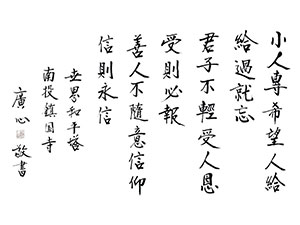 小人專希望人給
給過就忘
君子不輕受人恩
受則必報
善人不隨意信仰
信則永信
世界和平塔
南投鎮国寺
廣心 敬書